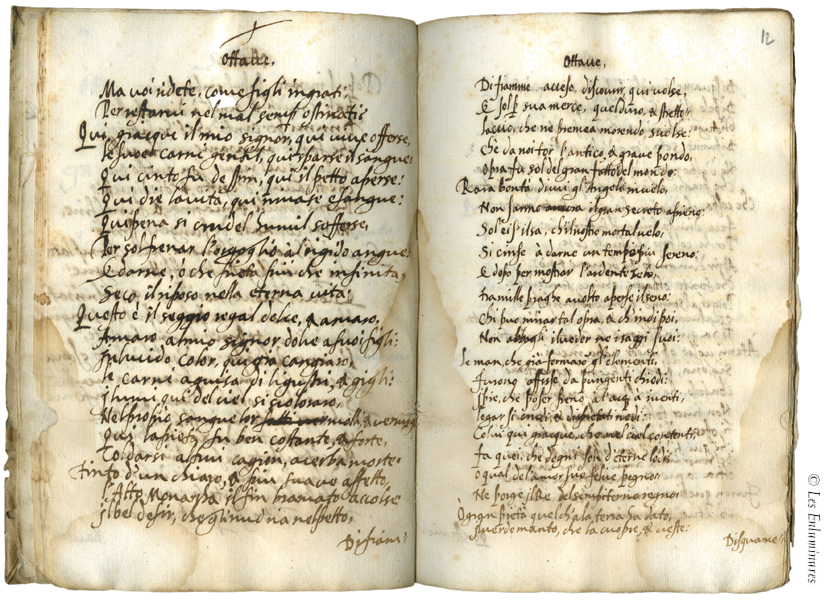 Ottaue.
Ma voi ridete, come figli ingrati;
Per restarui nel mal sempr' ostinati:
Qui, giacque il mio signor, qui uiue offerse,
le sue carni qui sparse il sangue:
Qui cinto fu de spin, qui il petto aperse:
Qui die la uita, qui rimase esangue:
Qui pena si crudel sofferse,
Per sol frenar l'orgoglio al rigido angue:
E darne, ò che pietà piu che infinita,
Seco, il riposo nella eterna uita.
Questo è il seggio regal dolce, & amaro,
Amaro al mio signor dolce a suoi figli:
In liuido color, qui già cangiaro,
le carni a guisa di ligustri, & gigli:
I lumi, qui del ciel si scoloraro,
Nel proprio sangue lor
Qui la pietà fu ben costante, & forte,
Tol darsi a fuin cagion, acerba morte.
Tinto d'un chiaro, & piu suaue affetto,
l'Alto Monarcha il fin bramato accolse
il bel desir, che gli nudria nel petto,
Di fiam
12
Ottaue,
Di fiamme acceso, discourir, qui uolse;
E sol sua merce, quel diuo, & stretto
laccio, che ne premea morendo sciolse:
Che da noi tor l'antico, & graue pondo,
Opra fu sol del gran fattor del mondo.
Rara bontà diui gl' Angeli muelo,
Non sanno il gran secreto apieno:
Sol ei si sa, ch'il nostro mortal uelo,
Si cinse à darne un tempo piu sereno:
E dopo per mostrar l'ardente zelo,
tra mille piaghe auolto aperse il seno:
Chi può mirar tal opra, & chi di poi,
Non abbagli il ueder ne i raggi suoi:
le man, che già formaro gl' Elementi,
Furono affisse da pungenti chiodi:
I pie, che poser freno à l'acq; à i uenti,
legar si crudi, & dispietati nodi:
Colui qui giacque, che nel ciel contenti
fa quei, che degni son d'eterne lodi:
ò qual de l'amor suo felice pegno
Ne porge il Re del sempiterno regno.
ò gran pietà quel ch'a la terra ha dato,
il uerde manto, che la cuopre, & ueste:
Di squame
© Les Enluminures